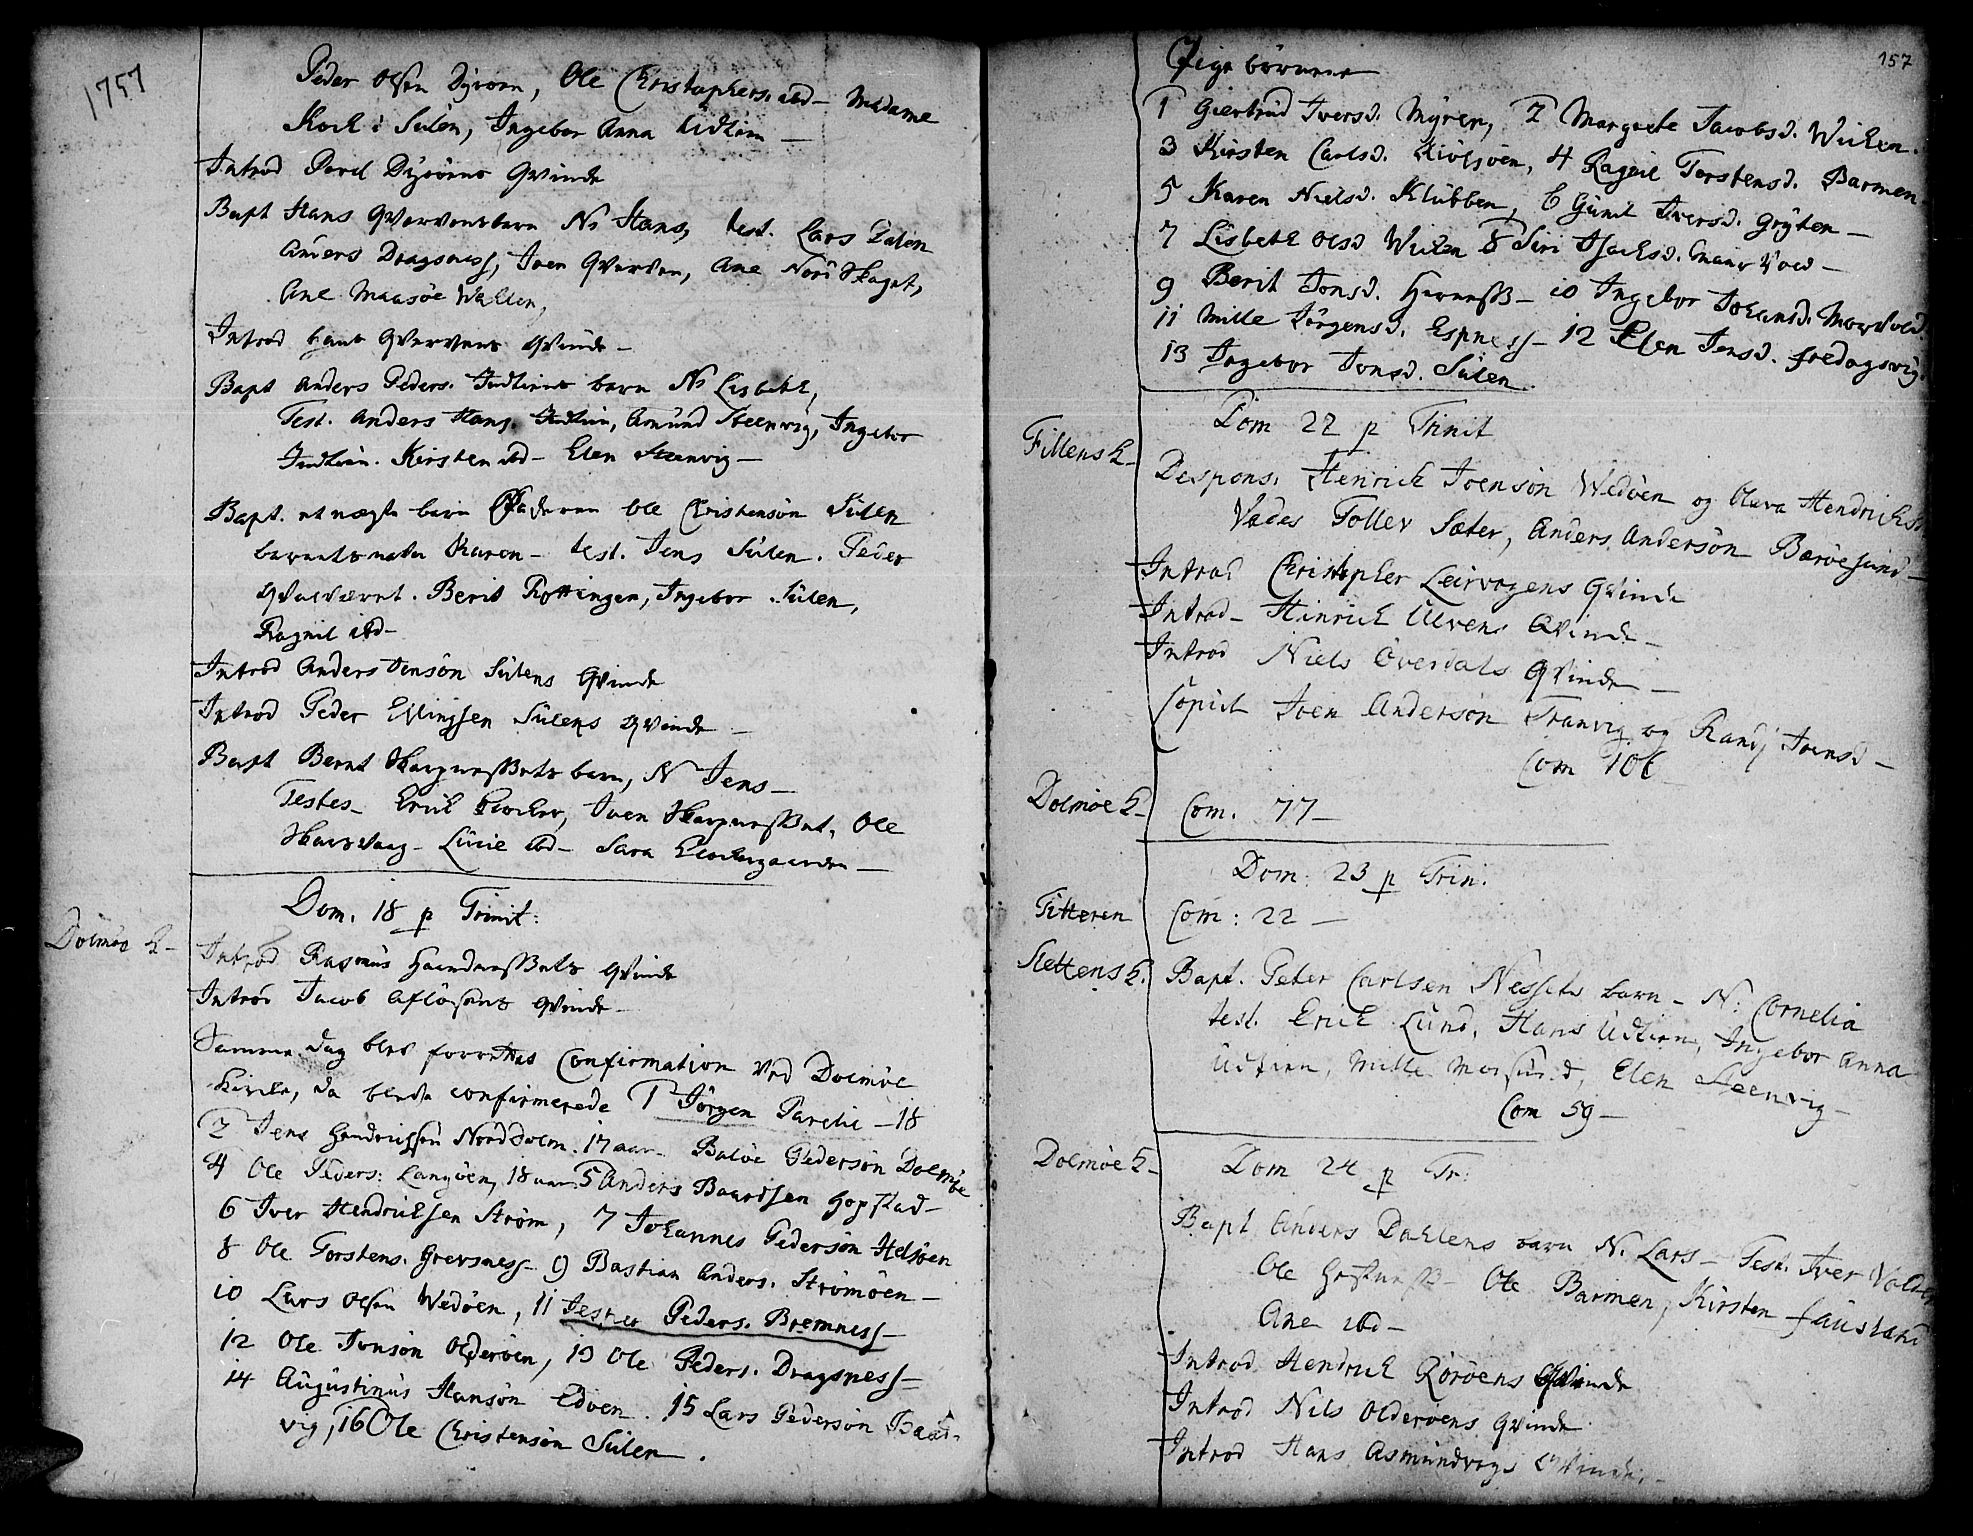 1757
Peder Olsen Dyrøen, Ole Christophers. ibd – Madame
Kock i Sulen, Ingebor Anna Udtian –
Introd Povel Dyrøens Qvinde
Bapt Hans Qvervens barn N. Hans, test. Lars Dalen
Anders Dragsness, Joen Qverven, Ane Nord Skaget,
Ane Maasøe Wallen,
Introd Hans Qvervens Qvinde –
Bapt Anders Peders. Indtians barn N. Lisbeth,
Test. Anders Hans. Indtian, Amund Steenvig, Ingebor
Indtian. Kirsten ibd – Elen Steenvig –
Bapt. et uægte barn Faderen Ole Christensøn Sulen
barnets moder Karen – test. Jens Sulen. Peder
Qvalværet. Berit Rottingen, Ingebor Sulen,
Ragnil ibd –
Introd Anders Jensøn Sulens Qvinde
Introd Peder Ellingsen Sulens Qvinde –
Bapt Bernt Skarpnessets barn, N Jens –
Testes – Erick Klocker, Joen Skarpnesset, Ole
Skarsvaag – Lucie ibd – Sara Klockergaarden –
Dom. 18 p Trinit:
Dolmøe K –
Introd Rasmus Havnnessets Qvinde
Introd Jacob Afløsens Qvinde –
Samme dag blev forrettes Confirmation ved Dolmøe
Kircke, da blev confirmerede 1 Jørgen Parelie – 18
2 Jens Hendrichsen Norddolm. 17 aar – Baloe Pedersøn Dolmøe
4 Ole Peders: Langøen, 18 aar 5 Anders Baardsen Hopstad –
6 Iver Hendrichsen Strøm, 7 Johannes Pedersøn Helsøen
8 Ole Torstens. Grevsness – 9 Bastian Anders. Strømøen –
10 Lars Olsen Wedøen, 11 Jesper Peders. Bremness –
12 Ole Jonsøn Olderøen, 13 Ole Peders. Dragsness –
14 Augustinus Hansøn Edøen. 15 Lars Pedersøn
vig, 16 Ole Christensøn Sulen.
157
Pige børnene
1 Giertrud Iversd. Myren, 2 Margrete Jacobsd. Wicken.
3 Kirsten Carlsd. Kiølsøen, 4 Ragnil Torstensd. Barmen
5 Karen Nielsd. Klubben, 6 Gunil Iversd. Gryten –
7 Lisbeth Olsd Wicken 8 Siri Isachsd. Maus Vold –
9 Berit Jonsd. Havness – 10 Ingebor Johansd. Mausvold
11 Mille Jørgensd. Espness – 12 Elen Jensd. Fredagsvig.
13 Ingebor Jonsd. Sulen.
Dom 22 p Trinit
Fillens K –
Despons. Henrick Joensøn Wedøen og Olava Hendrichsd.
Vades Toller Sæter, Anders Andersøn Barøesund –
Introd Christopher Leirvogens Qvinde
Introd – Hinrick Ulvens Qvinde –
Introd Niels Overdals Qvinde –
Copul Joen Andersøn Tranvig og Randj Joensd –
Com 106
Dolmøe K –
Com. 77 –
Dom: 23 p Trin.
Titteren Com: 22 –
Slettens K. Bapt. Peter Carlsen Nessets barn – N: Cornelia
test. Erick Lund, Hans Udtian, Ingebor Anna
Udtian, Mille Morsund, Elen Steenvig –
Com 59 –
Dolmøe K –
Dom 24 p Tr:
Bapt Anders Dahlens barn N. Lars – Test. Iver Valden
Ole Hestness – Ole Barmen, Kirsten Fausland
Ane ibd –
Introd Hendrick Rørøens Qvinde
Introd Nils Olderøens Qvinde
Introd Hans Asmundvogs Qvinde –